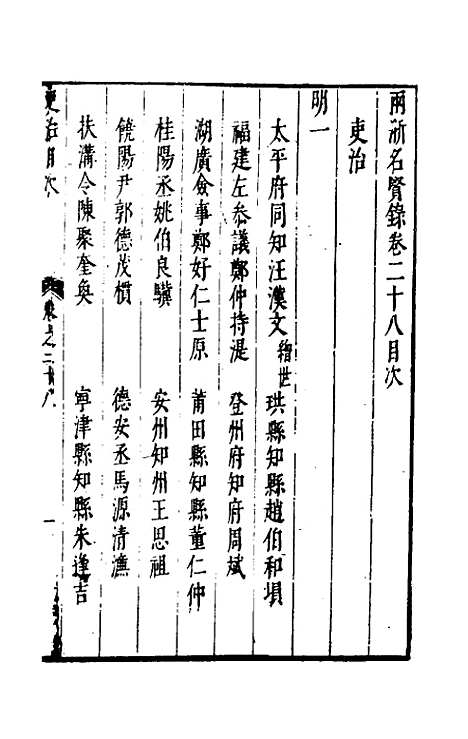 兩浙名賢錄卷二十八目次
吏治
明一
太平府同知汪漢文繪世　珙縣知縣趙伯和塤
福建左叅議鄭仲持湜　登州府知府周斌
湖廣僉事鄭好仁士原　莆田縣知縣董仁仲
桂陽丞姚伯良驥　安州知州王思祖
饒陽尹郭德茂槓　德安丞馬源清濂
扶溝令陳聚奎奐　寧津縣知縣朱逢吉
吏治目次　卷之二十八　一